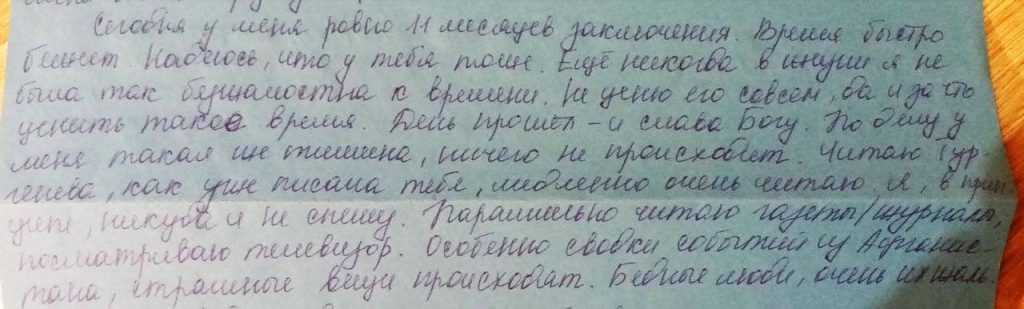 Сегодня у меня ровно 11 месяцев заключения. Время быстро
бежит. Надеюсь, что у тебя тоже. Ещё никогда в жизни я не
была так безжалостна к времени. Не ценю его совсем, да и за что
ценить такое время. День прошел – и слава Богу. По делу у
меня такая же тишина, ничего не происходит. Читаю Тур-
генева, как уже писала тебе, медленно очень читаю. Я, в прин-
ципе, никуда и не спешу. Параллельно читаю газеты/журналы,
посматриваю телевизор. Особенно сводки событий из Афганис-
тана, страшные вещи происходят. Бедные люди, очень их жаль.